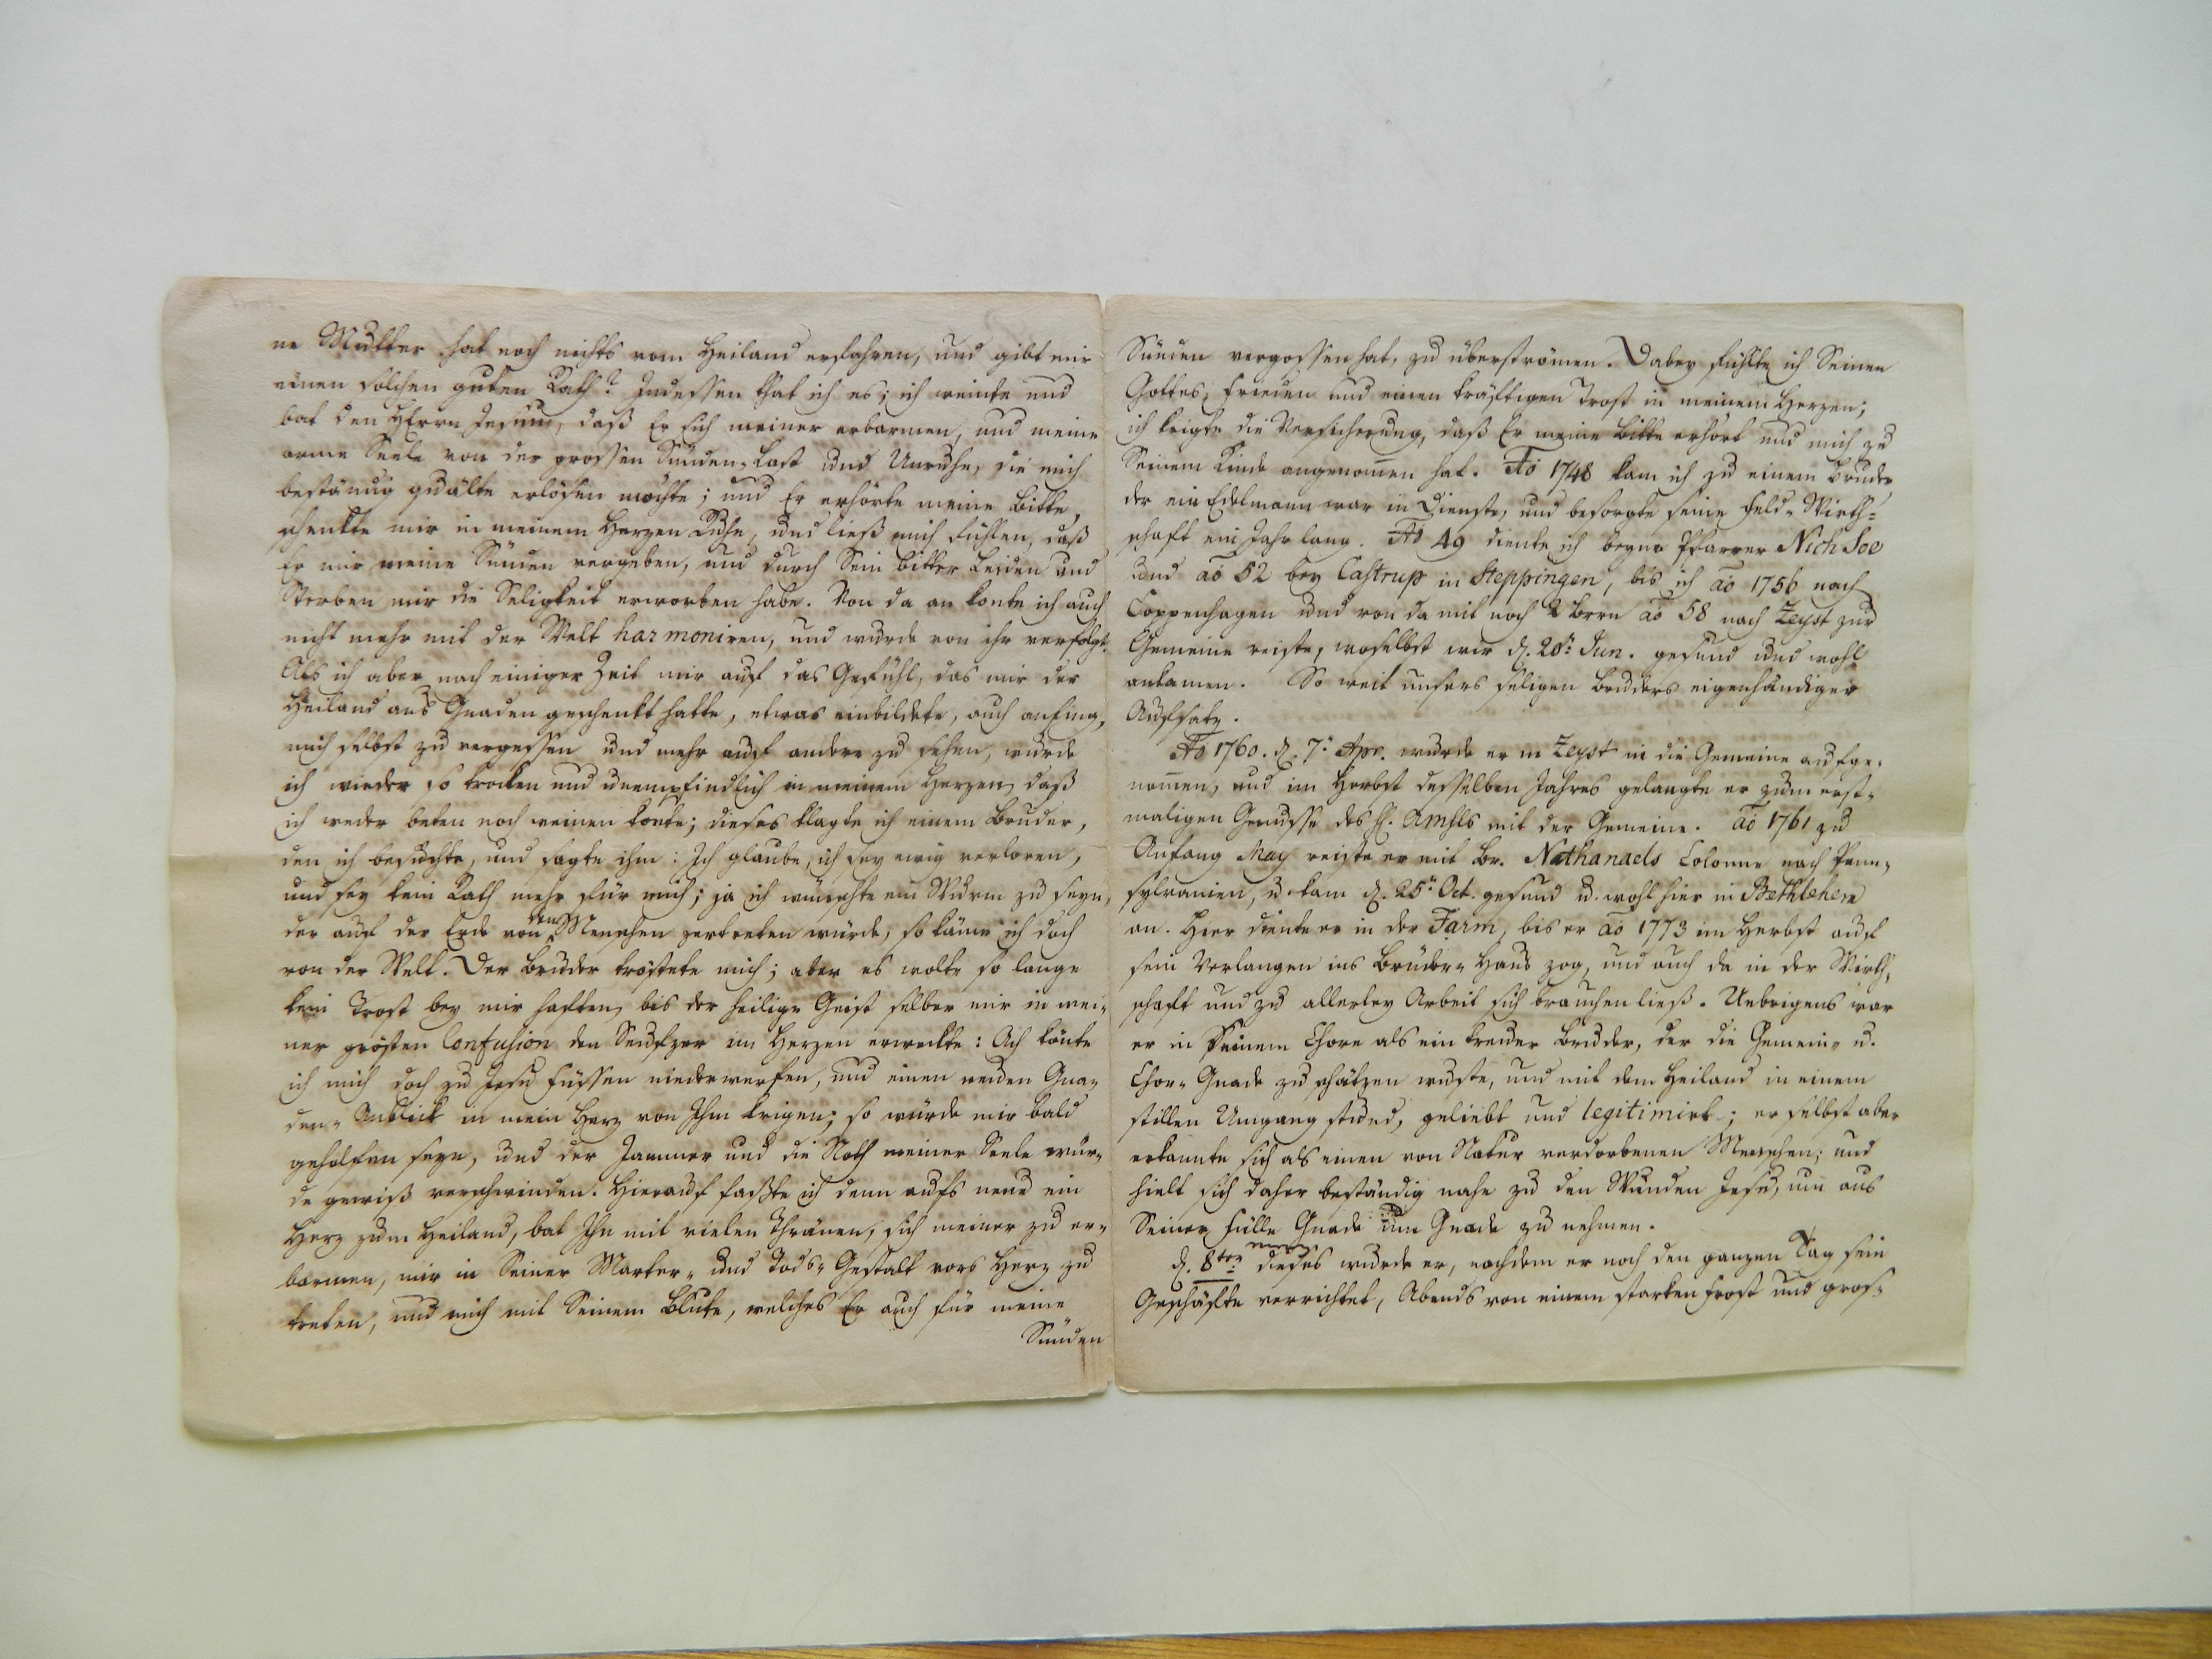 ne Mutter hat noch nichts vom Heiland erfahren, und gibt mir
einen solchen guten Rath? Indessen that ich es; ich weinte und
bat den HErrn Jesum, daß Er sich meiner erbarmen, und meine
arme Seele von der grossen Sünden-Last und Unruhe, die mich
bestänig quälte erlösen möchte; und Er erhörte meine Bitte,
schenkte mir in meinem Herzen Ruhe, und ließ mich fühlen, daß
Er mir meine Sünden vergeben, und durch Sein bitter Leiden und
Sterben mir die Seligkeit erworben habe. Von da an konte ich auch
nicht mehr mit der Welt harmoniren, und wurde von ihr verfolgt.
Als ich aber nach einiger Zeit mir auf das Gefühl, das mir der
Heiland aus Gnaden geschenkt hatte, etwas einbildete, auch anfing,
mich selbst zu vergessen und mehr auf andere zu sehen, wurde
ich wieder so trocken und unempfindlich in meinem Herzen, daß
ich weder beten noch weinen konte; dieses klagte ich einem Bruder,
den ich besuchte, und sagte ihm: Ich glaube, ich sey ewig verloren,
und sey kein Rath mehr für mich; ja ich wünschte ein Wurm zu seyn,
der auf der Erde von den Menschen zertreten würde, so käme ich doch
von der Welt. Der Bruder tröstete mich; aber es wolte so lange
kein Trost bey mir haften, bis der heilige Geist selber mir in mei-
ner grösten Confusion den Seufzer im Herzen erweckte: Ach könte
ich mich doch zu Jesu Füssen niederwerfen, und einen neuen Gna-
den-Anblick in mein Herz von Ihm krigen; so würde mir bald
geholfen seyn, und der Jammer und die Noth meiner Seele wür-
de gewiß verschwinden. Hierauf faßte ich denn aufs neue ein
Herz zum Heiland, bat Ihn mit vielen Thränen, sich meiner zu er-
barmen, mir in Seiner Marter- und Tods-Gestalt vors Herz zu
treten, und mich mit Seinem Blute, welches Er auch für meine
Sünden
Sünden vergossen hat, zu überströmen. Dabey fühlte ich Seinen
Gottes-Frieden und einen kräftigen Trost in meinem Herzen;
ich krigte die Versicherung, daß Er meine Bitte erhört und mich zu
Seinem Kinde angenomen hat. Ao 1748 kam ich zu einem Bruder
der ein Edelmann war in Dienste, und besorgte seine Feld-Wirth-
schaft ein Jahr lang. Ao 49 diente ich beym Pfarrer Nich Soe
und ao 52 bey Castrup in Steppingen, bis ich ao 1756 nach
Coppenhagen und von da mit noch 2 Brrn ao 58 nach Zeyst zur
Gemeine reiste, woselbst wir d. 20n Jun. gesund und wohl
ankamen. So weit unsers seligen Bruders eigenhändiger
Aufsatz.
Ao 1760. d. 7n Apr. wurde er in Zeyst in die Gemeine aufge-
nomen, und im Herbst desselben Jahres gelangte er zum erst-
maligen Genusse des h. Amhls mit der Gemeine. Ao 1761 zu
Anfang May reiste er mit Br. Nathanaels Colonne nach Penn-
sylvanien, u. kam d. 25n Oct. gesund u. wohl hier in Bethlehem
an. Hier diente er in der Farm, bis er ao 1773 im Herbst auf
sein Verlangen ins Brüder-Haus zog, und auch da in der Wirth-
schaft und zu allerley Arbeit sich brauchen ließ. Uebrigens war
er in Seinem Chore als ein treuer Bruder, der die Gemein- u.
Chor-Gnade zu schätzen wuste, und mit dem Heiland in einem
stillen Umgang stund, geliebt und legitimirt; er selbst aber
erkannte sich als einen von Natur verdorbenen Menschen, und
hielt sich daher beständig nahe zu den Wunden Jesu, um aus
Seiner Fülle Gnade um Gnade zu nehmen.
d. 8ten dieses wurde er, nachdem er noch den ganzen Tag sein
Geschäfte verrichtet, Abends von einem starken Frost und gros-